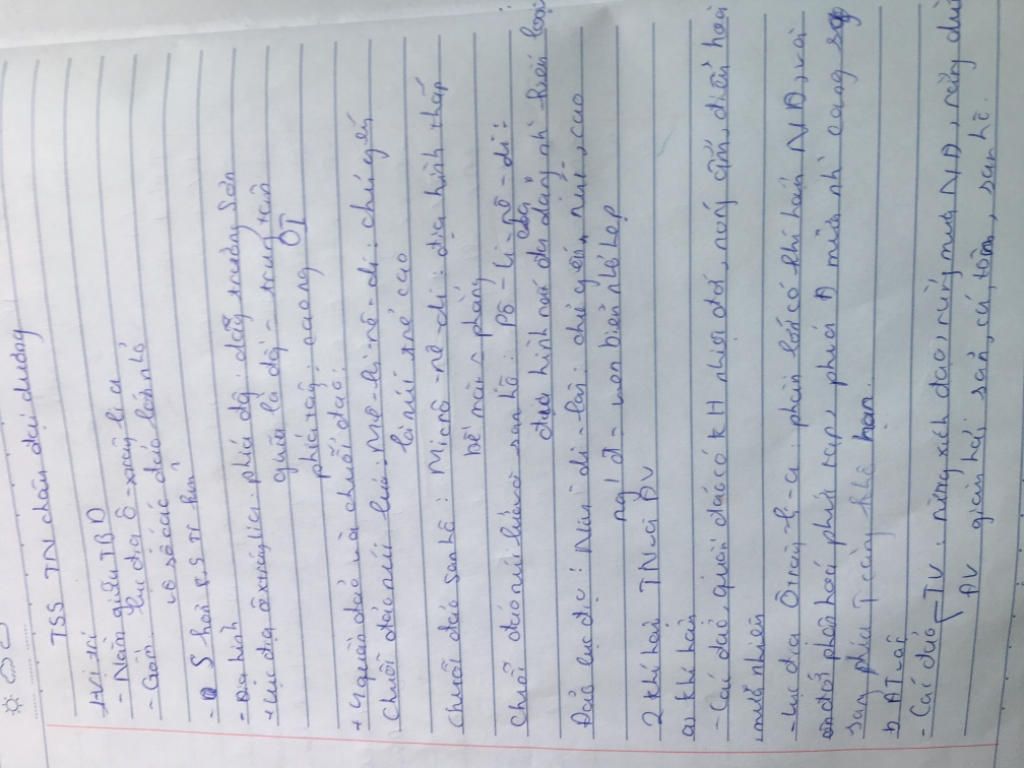 TSS TN châu đại dương
1 Vị trí
- Nằm giữa TBD
- Gồm: lục địa ô-xtrây li a
vô số các đảo lớn nhỏ
- S hơn 8,5 tr km²
- Địa hình
+ Lục địa ôxtrâylia: phía đông: dãy trường Sơn
giữa là đb - trung tâm
phía tây: caong ÔT
+ 4 quần đảo và chuỗi đảo:
Chuỗi đảo núi lửa: Mê-la-nê-di: chủ yếu
là núi trẻ cao
Chuỗi đảo san hô: Micrô-nê-di: địa hình thấp
bề mặt phẳng
Chuỗi đảo núi lửa và san hô: Pô-li-nê-di:
địa hình nơi đây đa dạng nh kiểu loại
Đảo lục địa: Niu di-lân: chủ yếu, núi, cao
ng đ- ven biển nhỏ hẹp
2 khí hậu TN và ĐV
a, khí hậu
- Các đảo, quần đảo có kH nhiệt đới, nóng ẩm, điều hoà
mưa nhiều
- Lục địa Ôxtrây-li-a phần lớn có khí hậu NĐ, và
ôn đới phân hoá phức tạp, phía Đ mưa nh caong
sang phía T càng khô hạn
b ĐTvật
- Các đảo TV: rừng xích đạo, rừng mưa NĐ, rừng dừa
ĐV giàu hải sản, cá, tôm, san hô.